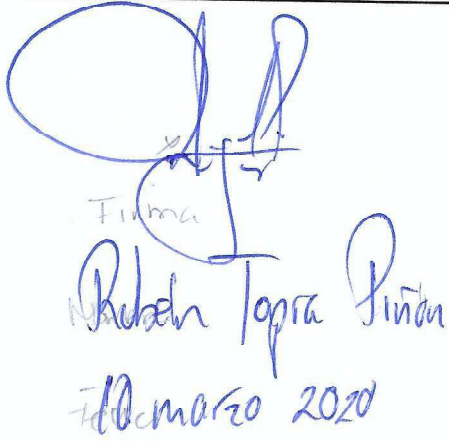 Firma
Ruben Tapia Piñon
10 marzo 2020